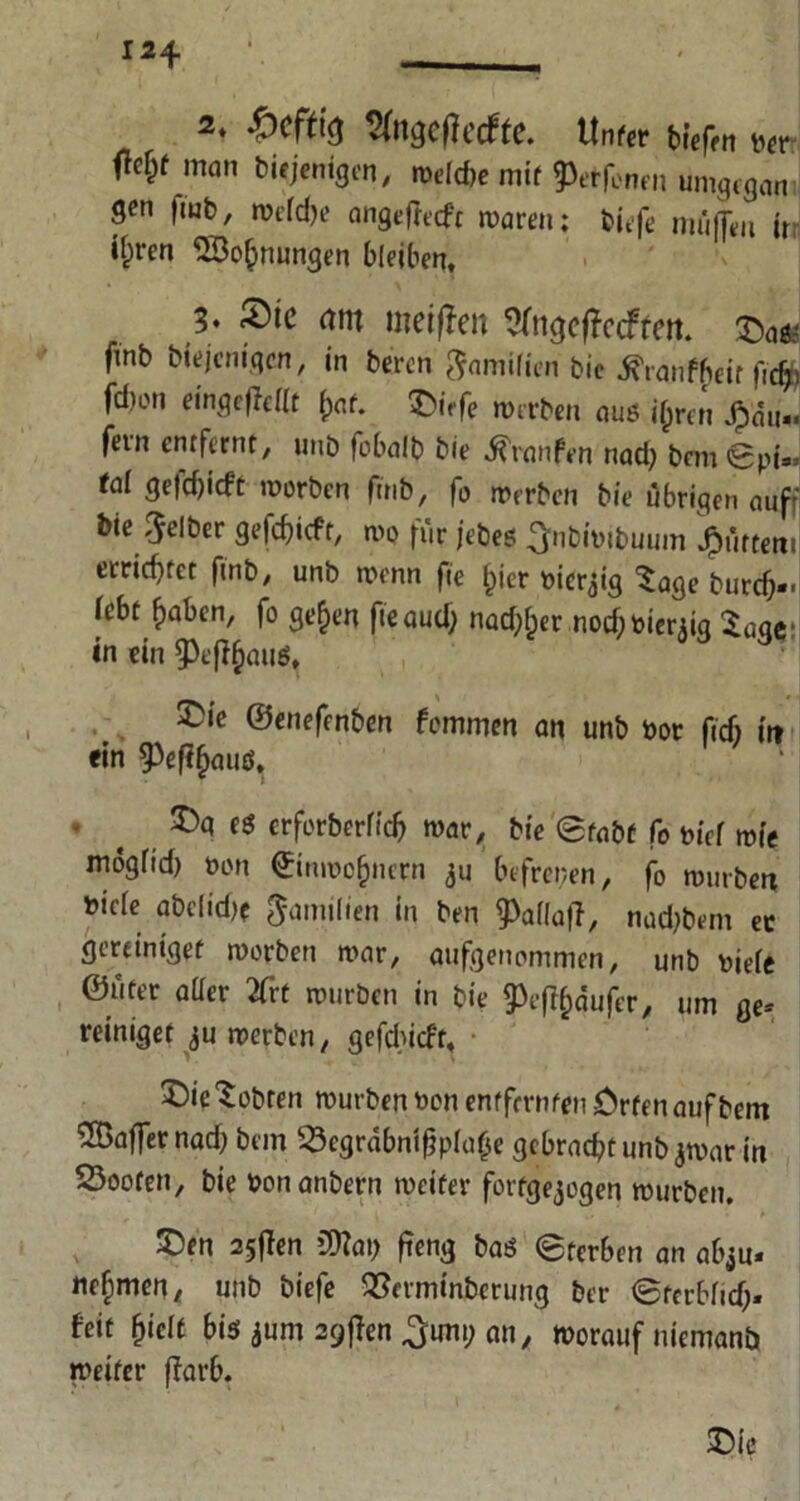 124
2. Heftig Angesteckte. Unter diesen ver-
steht man diejenigen, welche mit Personen umgegan-
gen sind, welche angesteckt waren; diese müssen in
ihren Wohnungen bleiben.
3. Die am meisten Angesteckten. Das
sind diejenigen, in deren Familien die Krankheit sich
schon eingestellt hat. Diese werden aus ihren Häu-
sern entfernt, und sobald die Kranken nach dem Spi-
tal geschickt worden sind, so werden die übrigen auf
die Felder geschickt, wo für jedes Individuum Hütten
errichtet sind, und wenn sie hier vierzig Tage durch-
lebt haben, so gehen sie auch nachher noch vierzig Tage
in ein Pesthaus.
Die Genesenden kommen an und vor sich in
ein Pesthaus.
Da es erforderlich war, die Stadt so viel wie
möglich von Einwohnern zu befreyen, so wurden
viele adeliche Familien in den Pallast, nachdem er
gereiniget worden war, aufgenommen, und viele
Güter aller Art wurden in die Pesthäuser, um ge-
reiniget zu werden, geschickt.
Die Todten wurden von entfernten Orten auf dem
Wasser nach dem Begräbnißplatze gebracht und zwar in
Booten, die von andern weiter fortgezogen wurden.
Den 25sten May fieng das Sterben an abzu-
nehmen, und diese Verminderung der Sterblich-
keit hielt bis zum 29sten Juny an, worauf niemand
weiter starb.
Die